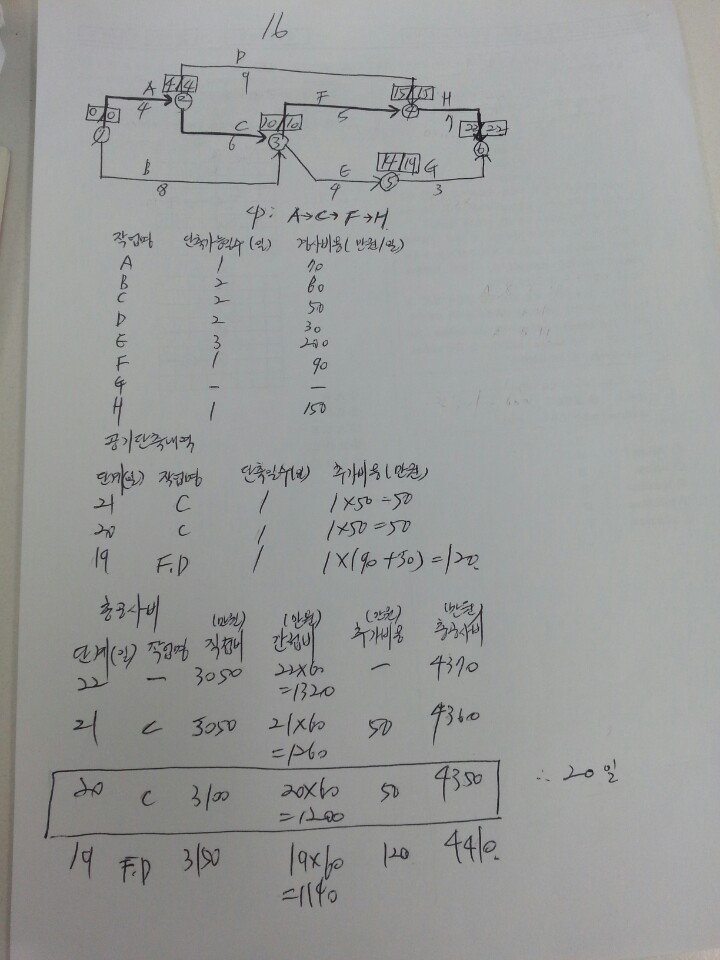 16
D
9
A
4
4 4
2
0 0
1
C
6
10 10
3
F
5
15 15
4
H
7
22 22
6
B
8
E
4
14 19
5
G
3
A→C→F→H
작업명 단축가능일수(일) 경사비용(만원/일)
A 1 70
B 2 60
C 2 50
D 2 30
E 3 200
F 1 90
G - -
H 1 150
공기단축내역
단계(일) 작업명 단축일수(일) 추가비용(만원)
21 C 1 1×50=50
20 C 1 1×50=50
19 F.D 1 1×(90+30)=120.
총공사비
(만원) (만원) (만원) (만원)
단계(일) 작업명 직접비 간접비 추가비용 총공사비
22 - 3050 22×60 - 4370
=1320
21 C 3050 21×60 50 4360
=1260
20 C 3100 20×60 50 4350 ∴ 20일
=1200
19 F.D 3150 19×60 120 4410.
=1140